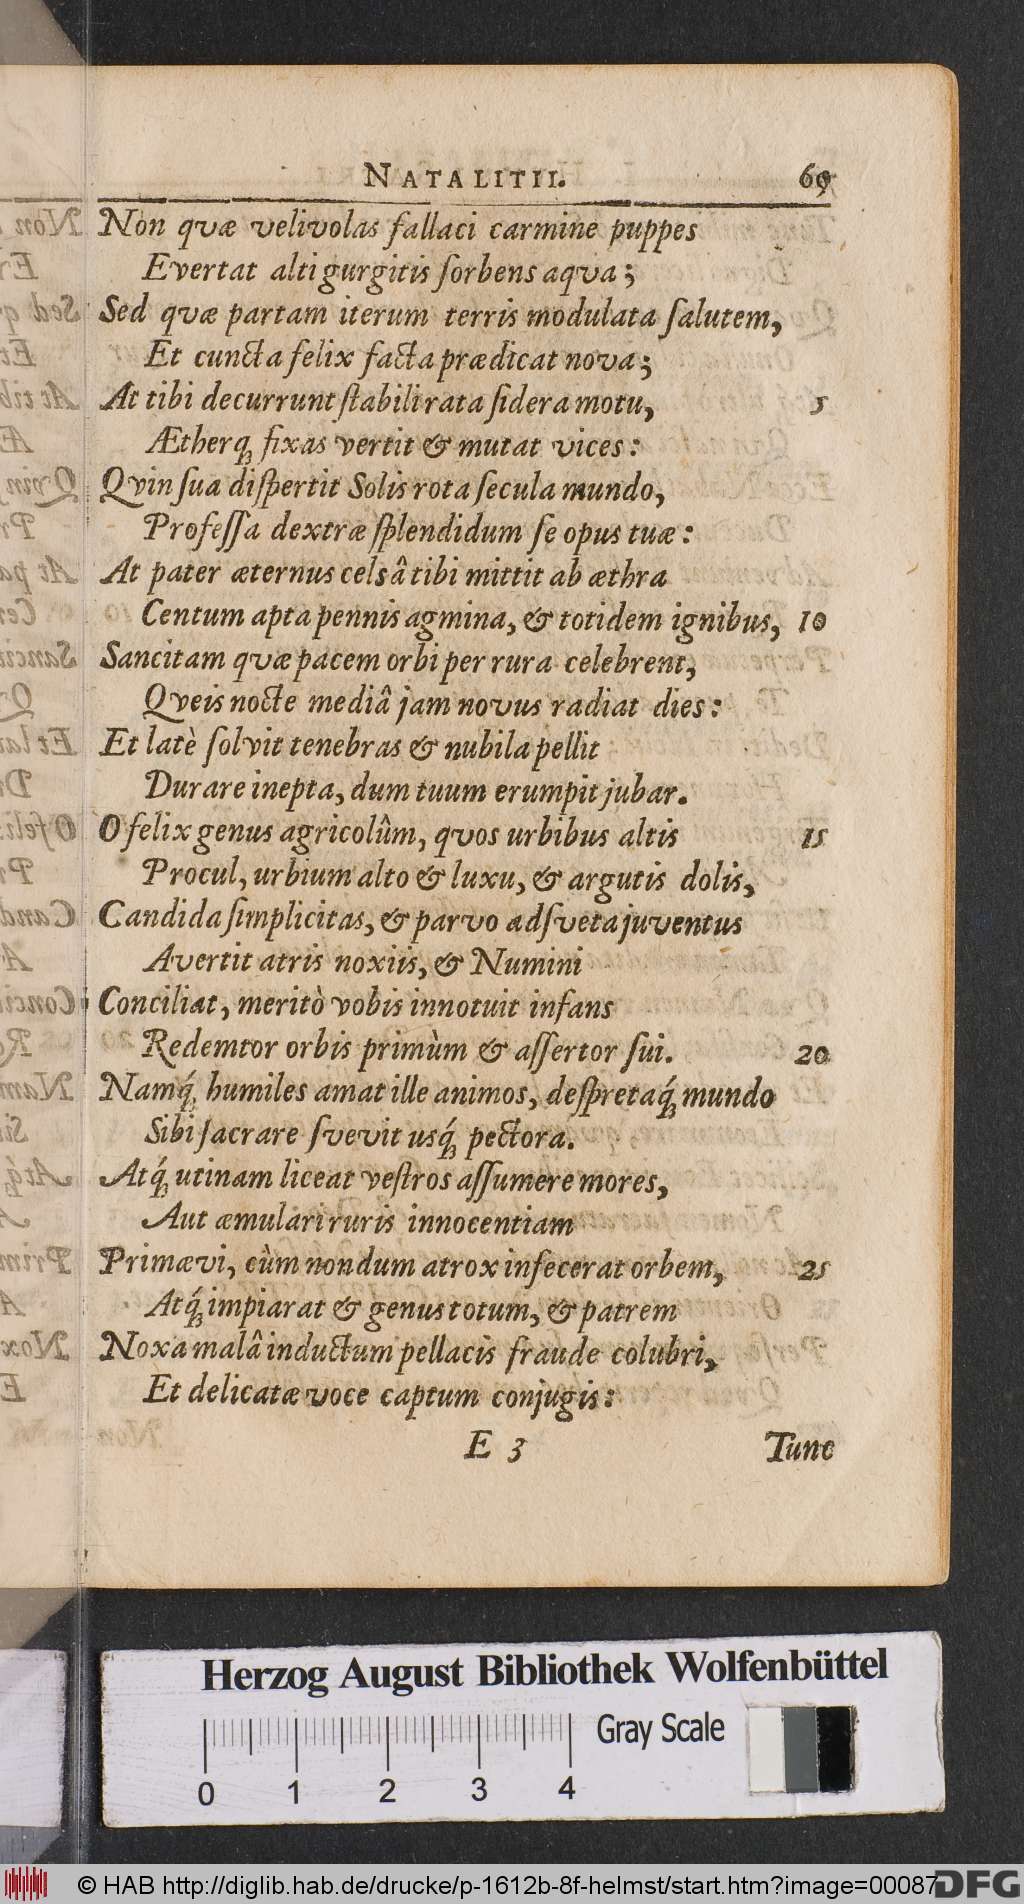 NATALITII. 69
Non qvæ velivolas fallaci carmine puppes
Evertat alti gurgitis ſorbens aqva;
Sed qvæ partam iterum terris modulata ſalutem,
Et cuncta felix facta prædicat nova;
At tibi decurrunt ſtabili rata ſidera motu, 5
Ætherq́; fixas vertit & mutat vices:
Qvin ſua diſpertit Solis rota ſecula mundo,
Profeſſa dextræ ſplendidum ſe opus tuæ:
At pater æternus celsâ tibi mittit ab æthra
Centum apta pennis agmina, & totidem ignibus, 10
Sancitam qvæ pacem orbi per rura celebrent,
Qveis nocte mediâ jam novus radiat dies:
Et latè ſolvit tenebras & nubila pellit
Durare inepta, dum tuum erumpit jubar.
O felix genus agricolûm, qvos urbibus altis 15
Procul, urbium alto & luxu, & argutis dolis,
Candida ſimplicitas, & parvo adſveta juventus
Avertit atris noxiis, & Numini
Conciliat, meritò vobis innotuit infans
Redemtor orbis primùm & aſſertor ſui. 20
Namq́; humiles amat ille animos, deſpretaq́; mundo
Sibi ſacrare ſvevit usq́; pectora.
Atq́; utinam liceat veſtros aſſumere mores,
Aut æmulari ruris innocentiam
Primævi, cùm nondum atrox infecerat orbem, 25
Atq́; impiarat & genus totum, & patrem
Noxa malâ inductum pellacis fraude colubri,
Et delicatæ voce captum conjugis:
E 3 Tunc
Herzog August Bibliothek Wolfenbüttel
Gray Scale
0 1 2 3 4
© HAB http://diglib.hab.de/drucke/p-1612b-8f-helmst/start.htm?image=00087
DFG